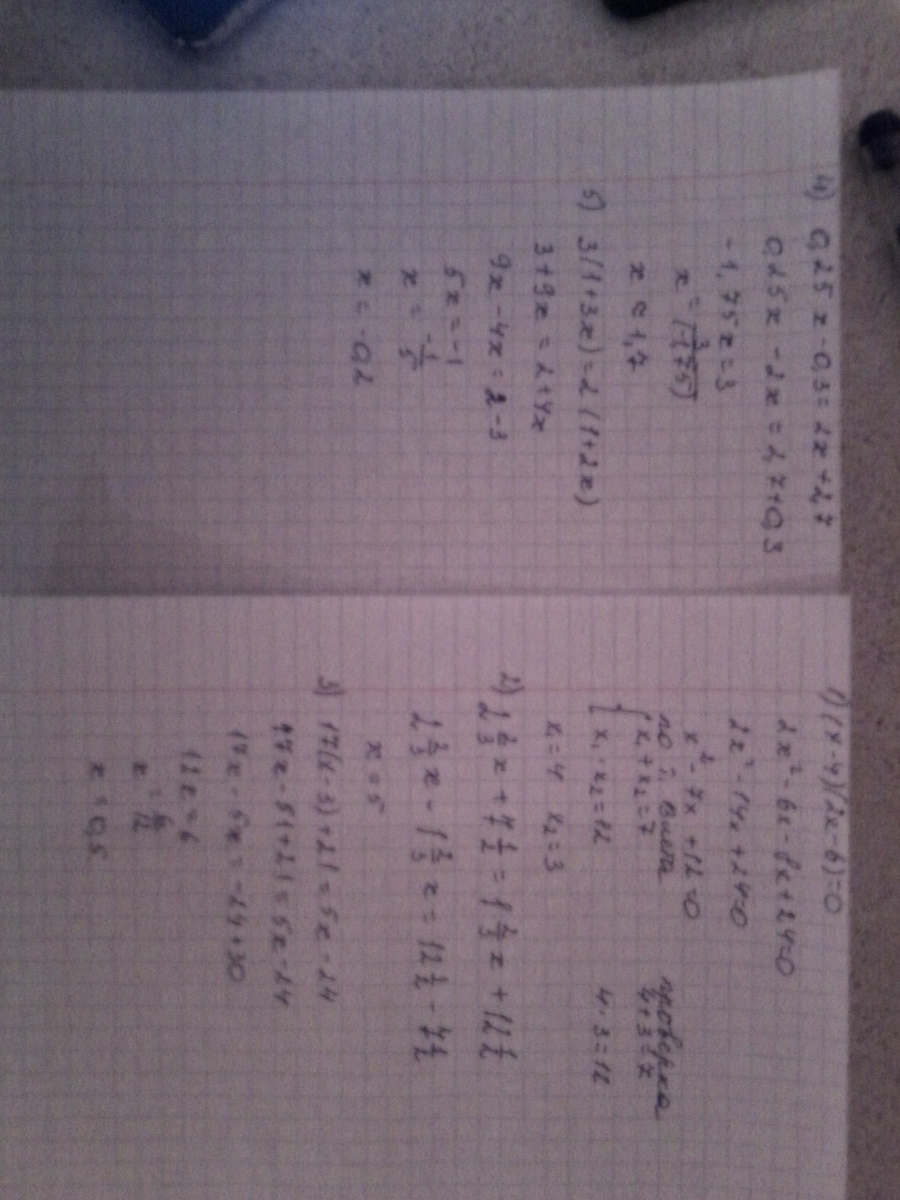 1) (x-4)(2x-6)=0
2x²-6x-8x+24=0
2x²-14x+24=0
x²-7x+12=0
по т. Виета
{ x₁+x₂=7
x₁·x₂=12
проверка
4+3=7
4·3=12
x₁=4 x₂=3
2) 2 2/3 x + 7 1/2 = 1 2/3 x + 12 1/2
2 2/3 x - 1 2/3 x = 12 1/2 - 7 1/2
x = 5
3) 17(x-3)+21=5x-24
17x-51+21=5x-24
17x-5x=-24+30
12x=6
x=6/12
x=0,5
4) 0,25x-0,3=2x+2,7
0,25x-2x=2,7+0,3
-1,75x=3
x=3/(-1,75)
x≈1,7
5) 3(1+3x)=2(1+2x)
3+9x=2+4x
9x-4x=2-3
5x=-1
x=-1/5
x=-0,2